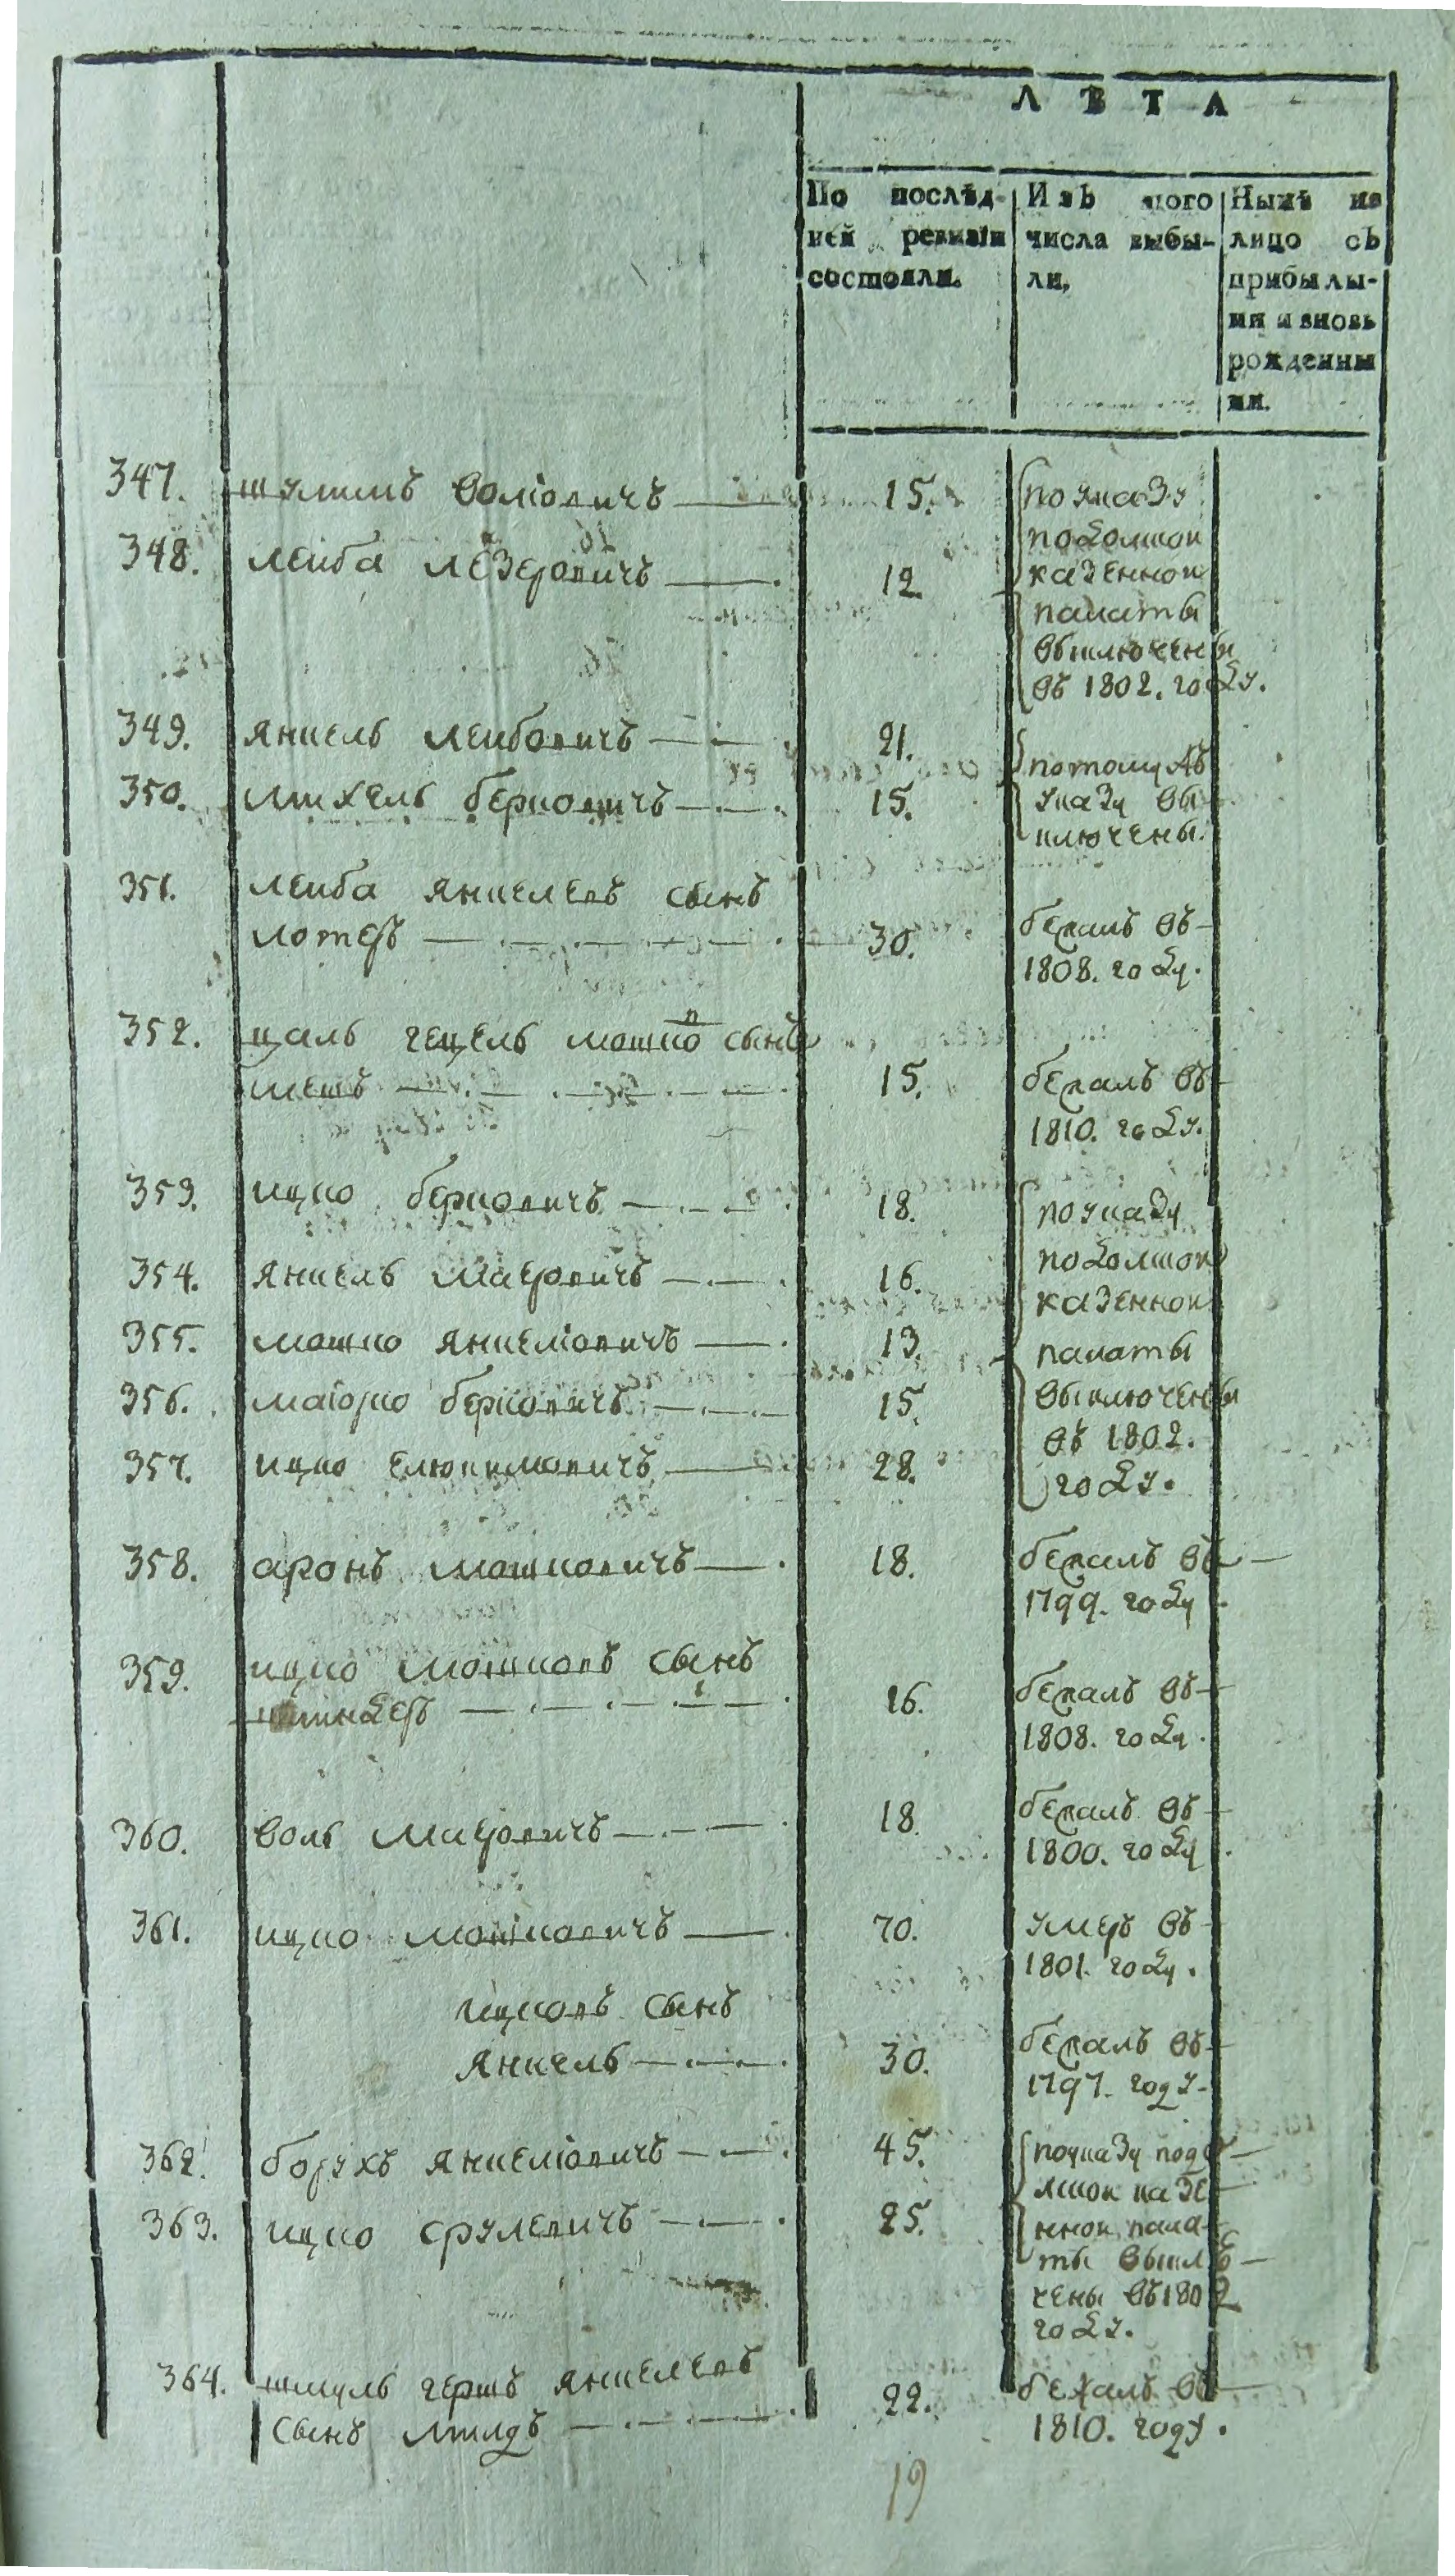 ЛѢТА
По послѣд- Изъ того Нынѣ на
ней ревизіи числа выбы- лицо съ
состояли. ли, прибылы-
ми и вновь
рожденны
ми.
347. шулимъ Волiовичъ — 15. по указу
подолской
348. Лейба Лезеровичъ — 12. казенной
палаты
Выключены
Въ 1802. году.
349. Янкель Лейбовичъ — 21. потомужъ
350. Михель Берковичъ — 15. указу Вы
ключены.
351. Лейба Янкелевъ сынъ
Лотеръ — 30. бежалъ Въ
1808. году.
352. цаль гецель мошковъ сынъ
15. бежалъ Въ
1810. году.
353. ицко Берковичъ — 18. по указу
подолской
354. Янкель Маеровичъ — 16. казенной
355. мошко Янкелiовичъ — 13. палаты
356. маiорко Берковичъ — 15. Выключены
Въ 1802.
357. ицко — 28. году.
358. аронъ мошковичъ — 18. бежалъ Въ
1799. году
359. ицко мошковъ сынъ
16. бежалъ Въ
1808. году.
360. Воль Маеровичъ — 18. бежалъ Въ
1800. году.
361. ицко мошковичъ — 70. умеръ Въ
1801. году.
ицковъ сынъ
Янкель — 30. бежалъ Въ
1797. году.
362. борухъ Янкелiовичъ — 45. по указу подо
лской казе
363. ицко срулевичъ — 25. нной пала
ты Выклю
чены Въ 1802
году.
364. шмуль гершъ Янкелевъ
сынъ — 22. бежалъ Въ
1810. году.
19